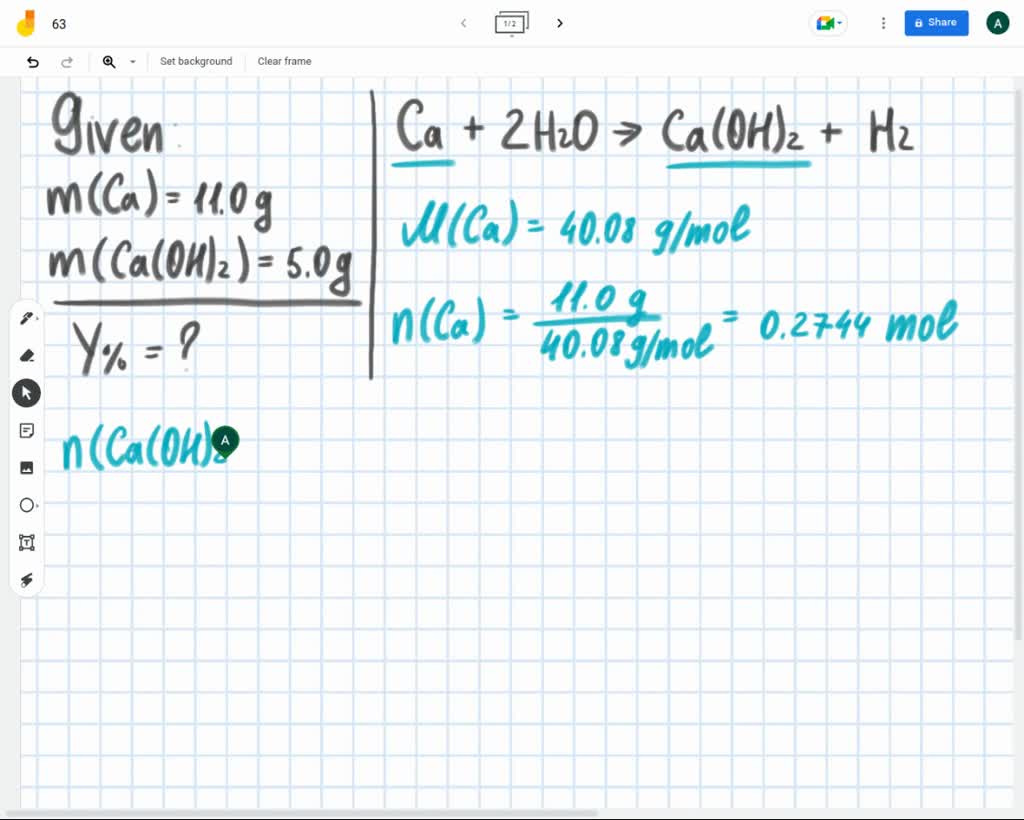 63
1/2
Share
A
Set background
Clear frame
Given:
m(Ca) = 11.0 g
m(Ca(OH)₂) = 5.0 g
Y% = ?
Ca + 2H₂O → Ca(OH)₂ + H₂
M(Ca) = 40.08 g/mol
n(Ca) = 11.0 g / 40.08 g/mol = 0.2744 mol
n(Ca(OH)₂
A